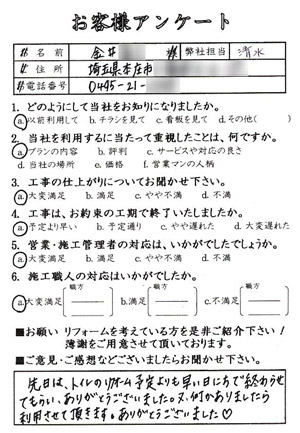 お客様アンケート
お名前 金井 様 弊社担当 清水
お住所 埼玉県本庄市
お電話番号 0495-21-
1. どのようにして当社をお知りになりましたか。
a.以前利用して b.チラシを見て c.看板を見て d.その他( )
2. 当社を利用するに当たって重視したことは、何ですか。
a.プランの内容 b.評判 c.サービスや対応の良さ
d.当社の場所 e.価格 f.営業マンの人柄
3. 工事の仕上がりについてお聞かせ下さい。
a.大変満足 b.満足 c.やや不満 d.不満
4. 工事は、お約束の工期で終了いたしましたか。
a.予定より早い b.予定通り c.やや遅れた d.大変遅れた
5. 営業・施工管理者の対応は、いかがでしたでしょうか。
a.大変満足 b.満足 c.やや不満 d.不満
6. 施工職人の対応はいかがでしたか。
a.大変満足 職方 b.満足 職方 c.不満 職方
■お願い リフォームを考えている方を是非ご紹介下さい!
薄謝をご用意させて頂いております。
■ご意見・ご感想などございましたらお聞かせ下さい。
先日は、トイレのリフォーム予定よりも早い日にちで終わらせ
てもらい、ありがとうございました。又、何かありましたら
利用させて頂きます。ありがとうございました♡